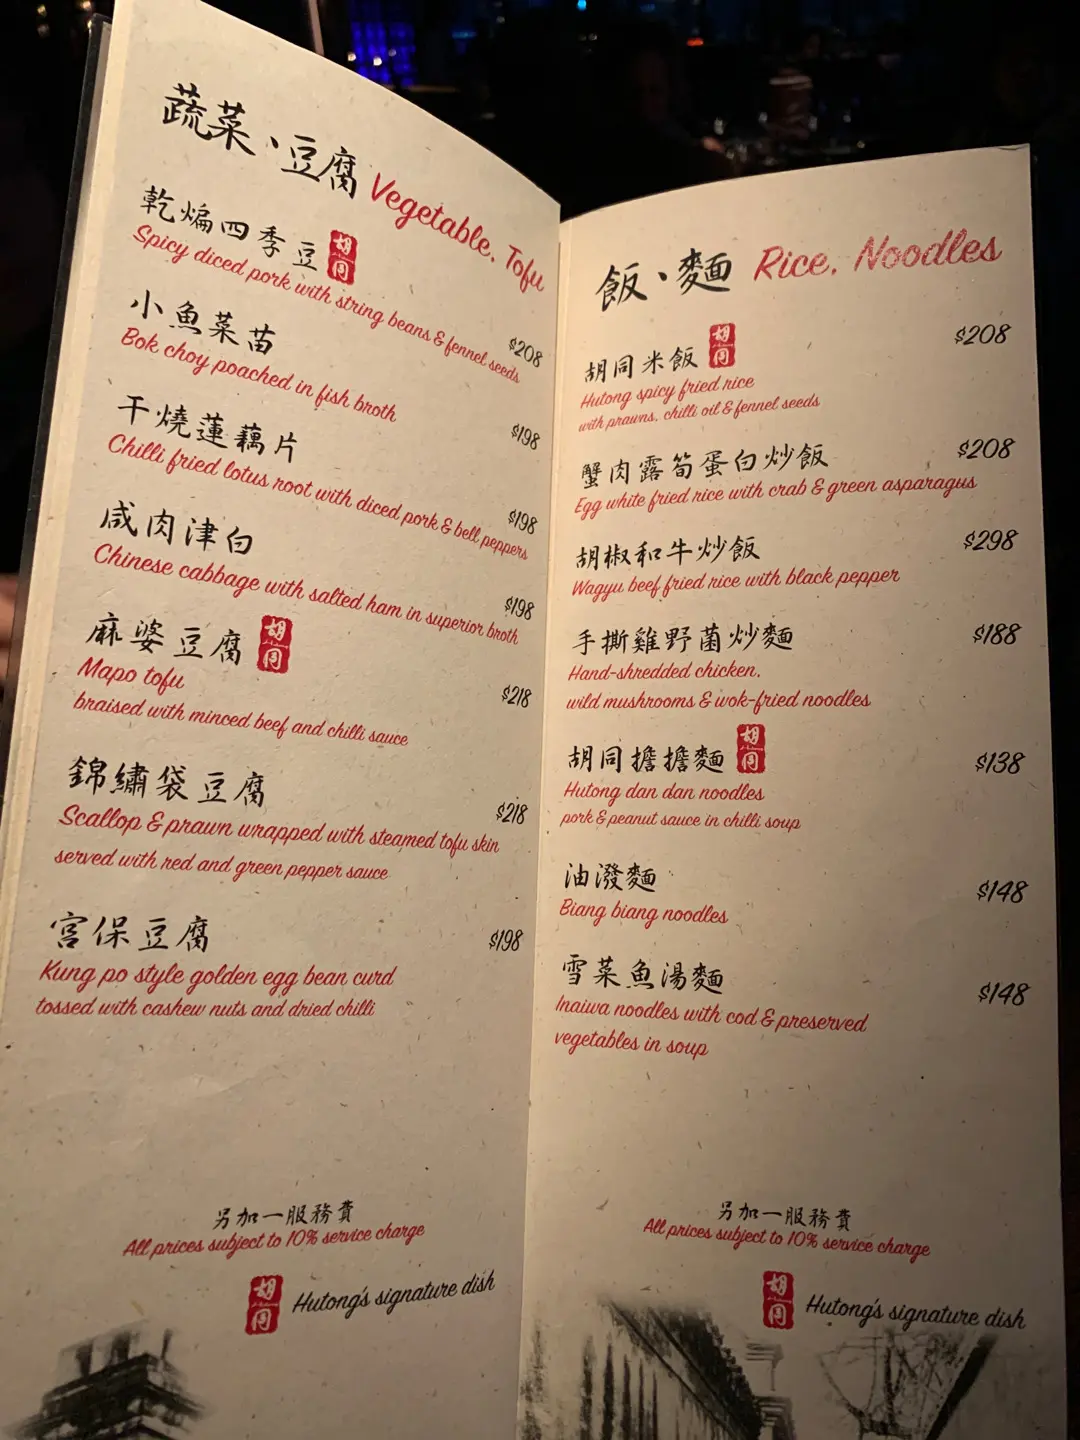 蔬菜、豆腐 Vegetable, Tofu
乾煸四季豆 胡同
Spicy diced pork with string beans & fennel seeds $208
小魚菜苗
Bok choy poached in fish broth $198
干燒蓮藕片
Chilli fried lotus root with diced pork & bell peppers $198
咸肉津白
Chinese cabbage with salted ham in superior broth $198
麻婆豆腐 胡同
Mapo tofu $218
braised with minced beef and chilli sauce
錦繡袋豆腐 $218
Scallop & prawn wrapped with steamed tofu skin
served with red and green pepper sauce
宮保豆腐 $198
Kung po style golden egg bean curd
tossed with cashew nuts and dried chilli
另加一服務費
All prices subject to 10% service charge
胡同 Hutong's signature dish
飯、麵 Rice, Noodles
胡同米飯 胡同 $208
Hutong spicy fried rice
with prawns, chilli oil & fennel seeds
蟹肉露筍蛋白炒飯 $208
Egg white fried rice with crab & green asparagus
胡椒和牛炒飯 $298
Wagyu beef fried rice with black pepper
手撕雞野菌炒麵 $188
Hand-shredded chicken,
wild mushrooms & wok-fried noodles
胡同擔擔麵 胡同 $138
Hutong dan dan noodles
pork & peanut sauce in chilli soup
油潑麵 $148
Biang biang noodles
雪菜魚湯麵 $148
Inaiwa noodles with cod & preserved
vegetables in soup
另加一服務費
All prices subject to 10% service charge
胡同 Hutong's signature dish